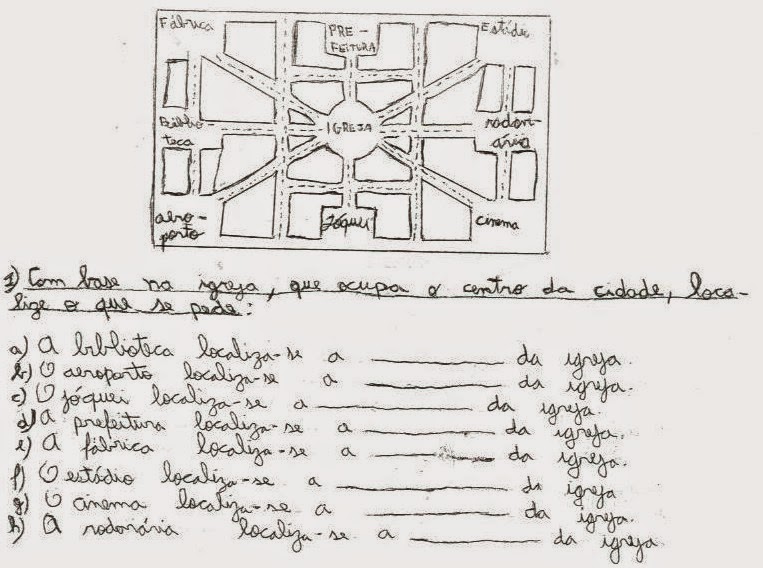 Fábrica
PRE-
FEITURA
Estádio
IGREJA
Biblio-
teca
rodoviária
aero-
porto
Jóquei
cinema
1) Com base na igreja, que ocupa o centro da cidade, loca-
lize o que se pede:
a) A biblioteca localiza-se a __________ da igreja.
b) O aeroporto localiza-se a __________ da igreja.
c) O jóquei localiza-se a __________ da igreja.
d) A prefeitura localiza-se a __________ da igreja.
e) A fábrica localiza-se a __________ da igreja.
f) O estádio localiza-se a __________ da igreja
g) O cinema localiza-se a __________ da igreja.
h) A rodoviária localiza-se a __________ da igreja.